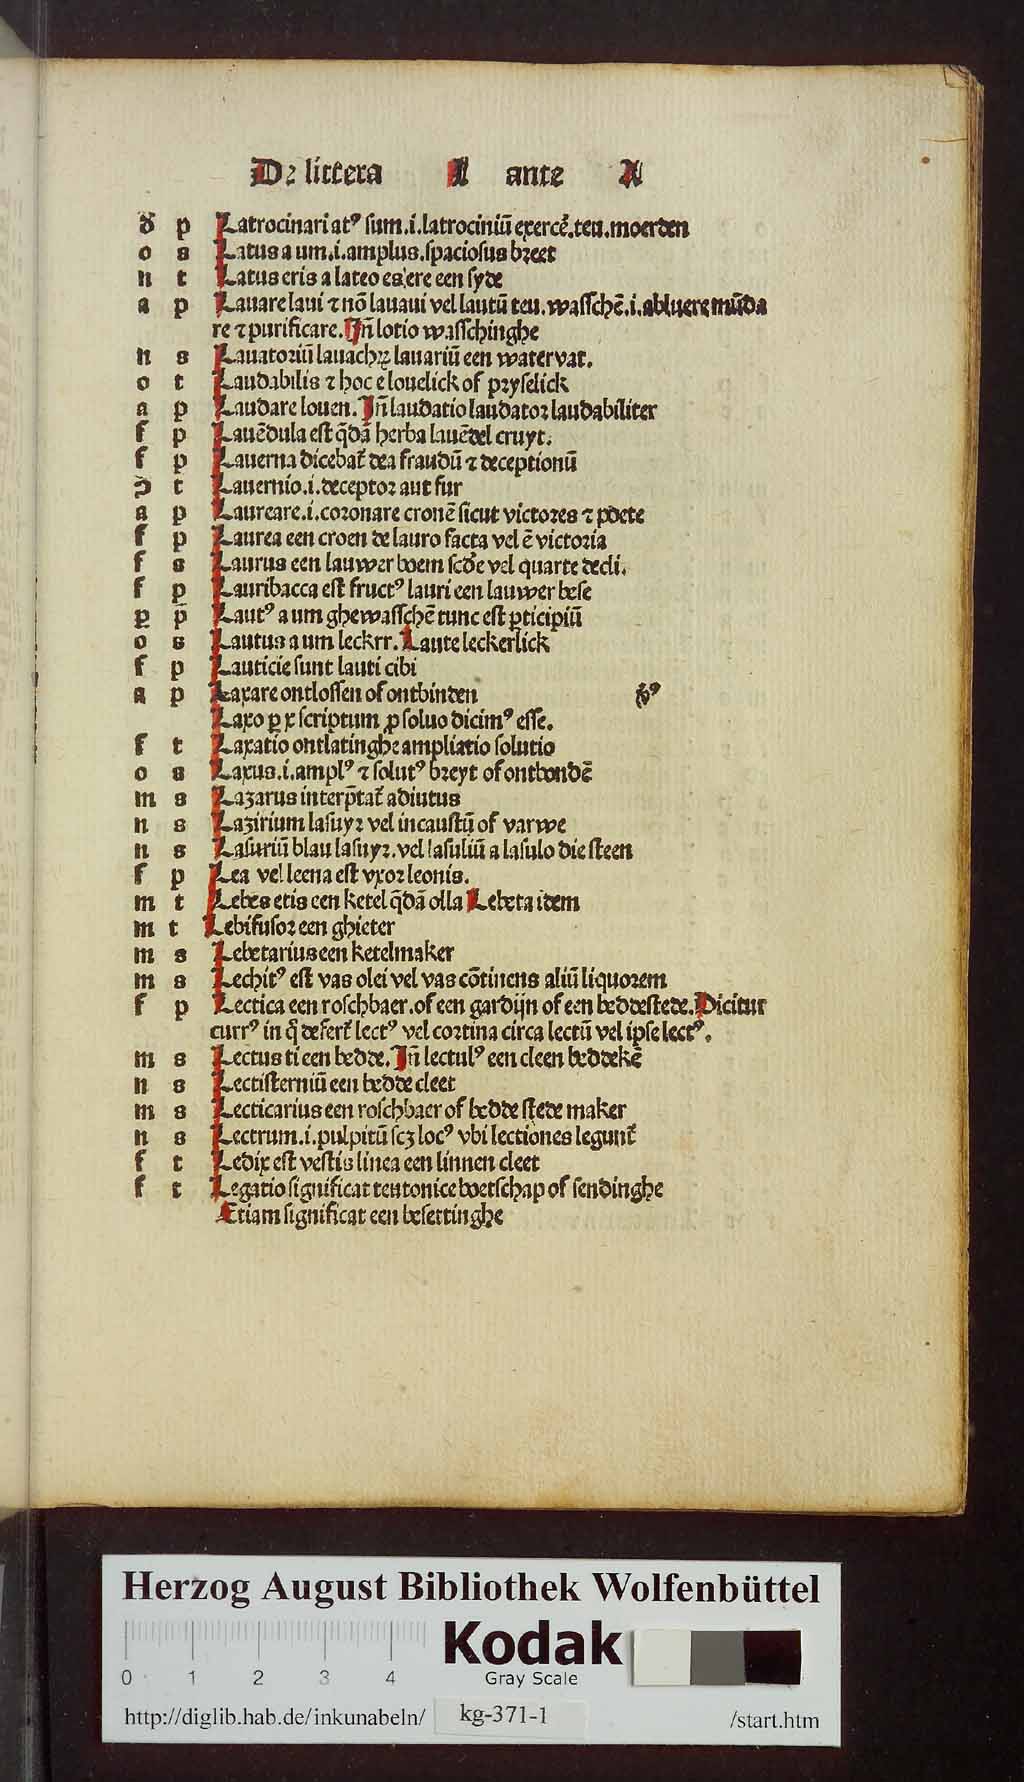 De littera L ante A
đ p Latrocinari atꝰ sum.i.latrociniū exercē.teu.moerden
o s Latus a um.i.amplus.spaciosus breet
n t Latus eris a lateo es ere een syde
a p Lauare laui ⁊ nō lauaui vel lautū teu.wasschē.i.abluere mūda
re ⁊ purificare. Jn̄ lotio wasschinghe
n s Lauatoriū lauachrꝫ lauariū een watervat.
o t Laudabilis ⁊ hoc e louelick of pryselick
a p Laudare louen. Jn̄ laudatio laudator laudabiliter
f p Lauēdula est q̄dā herba lauēdel cruyt.
f p Lauerna dicebat̄ dea fraudū ⁊ deceptionū
ꝯ t Lauernio.i.deceptor aut fur
a p Laureare.i.coronare cronē sicut victores ⁊ poete
f p Laurea een croen de lauro facta vel ē victoria
f s Laurus een lauwer boem scd̄e vel quarte decli.
f p Lauribacca est fructꝰ lauri een lauwer bese
ꝑ p̄ Lautꝰ a um ghewasschē tunc est ꝑticipiū
o s Lautus a um leckrr. Laute leckerlick
f p Lauticie sunt lauti cibi
a p Laxare ontlossen of ontbinden v̄ꝰ
Laxo ꝑ x scriptum ꝓ soluo dicimꝰ esse.
f t Laxatio ontlatinghe ampliatio solutio
o s Laxus.i.amplꝰ ⁊ solutꝰ breyt of ontbondē
m s Lazarus interp̄tat̄ adiutus
n s Lazirium lasuyr vel incaustū of varwe
n s Lasuriū blau lasuyr.vel lasuliū a lasulo die steen
f p Lea vel leena est vxor leonis.
m t Lebes etis een ketel q̄dā olla Lebeta idem
m t Lebifusor een ghieter
m s Lebetarius een ketelmaker
m s Lechitꝰ est vas olei vel vas cōtinens aliū liquorem
f p Lectica een roschbaer.of een gardijn of een beddestede.Dicitur
currꝰ in q̄ defert̄ lectꝰ vel cortina circa lectū vel ipse lectꝰ.
m s Lectus ti een bedde. Jn̄ lectulꝰ een cleen beddekē
n s Lectisterniū een bedde cleet
m s Lecticarius een roschbaer of bedde stede maker
n s Lectrum.i.pulpitū scꝫ locꝰ vbi lectiones legunt̄
f t Ledix est vestis linea een linnen cleet
f t Legatio significat teutonice boetschap of sendinghe
Etiam significat een besettinghe
Herzog August Bibliothek Wolfenbüttel
Kodak
0 1 2 3 4 Gray Scale
http://diglib.hab.de/inkunabeln/ kg-371-1 /start.htm